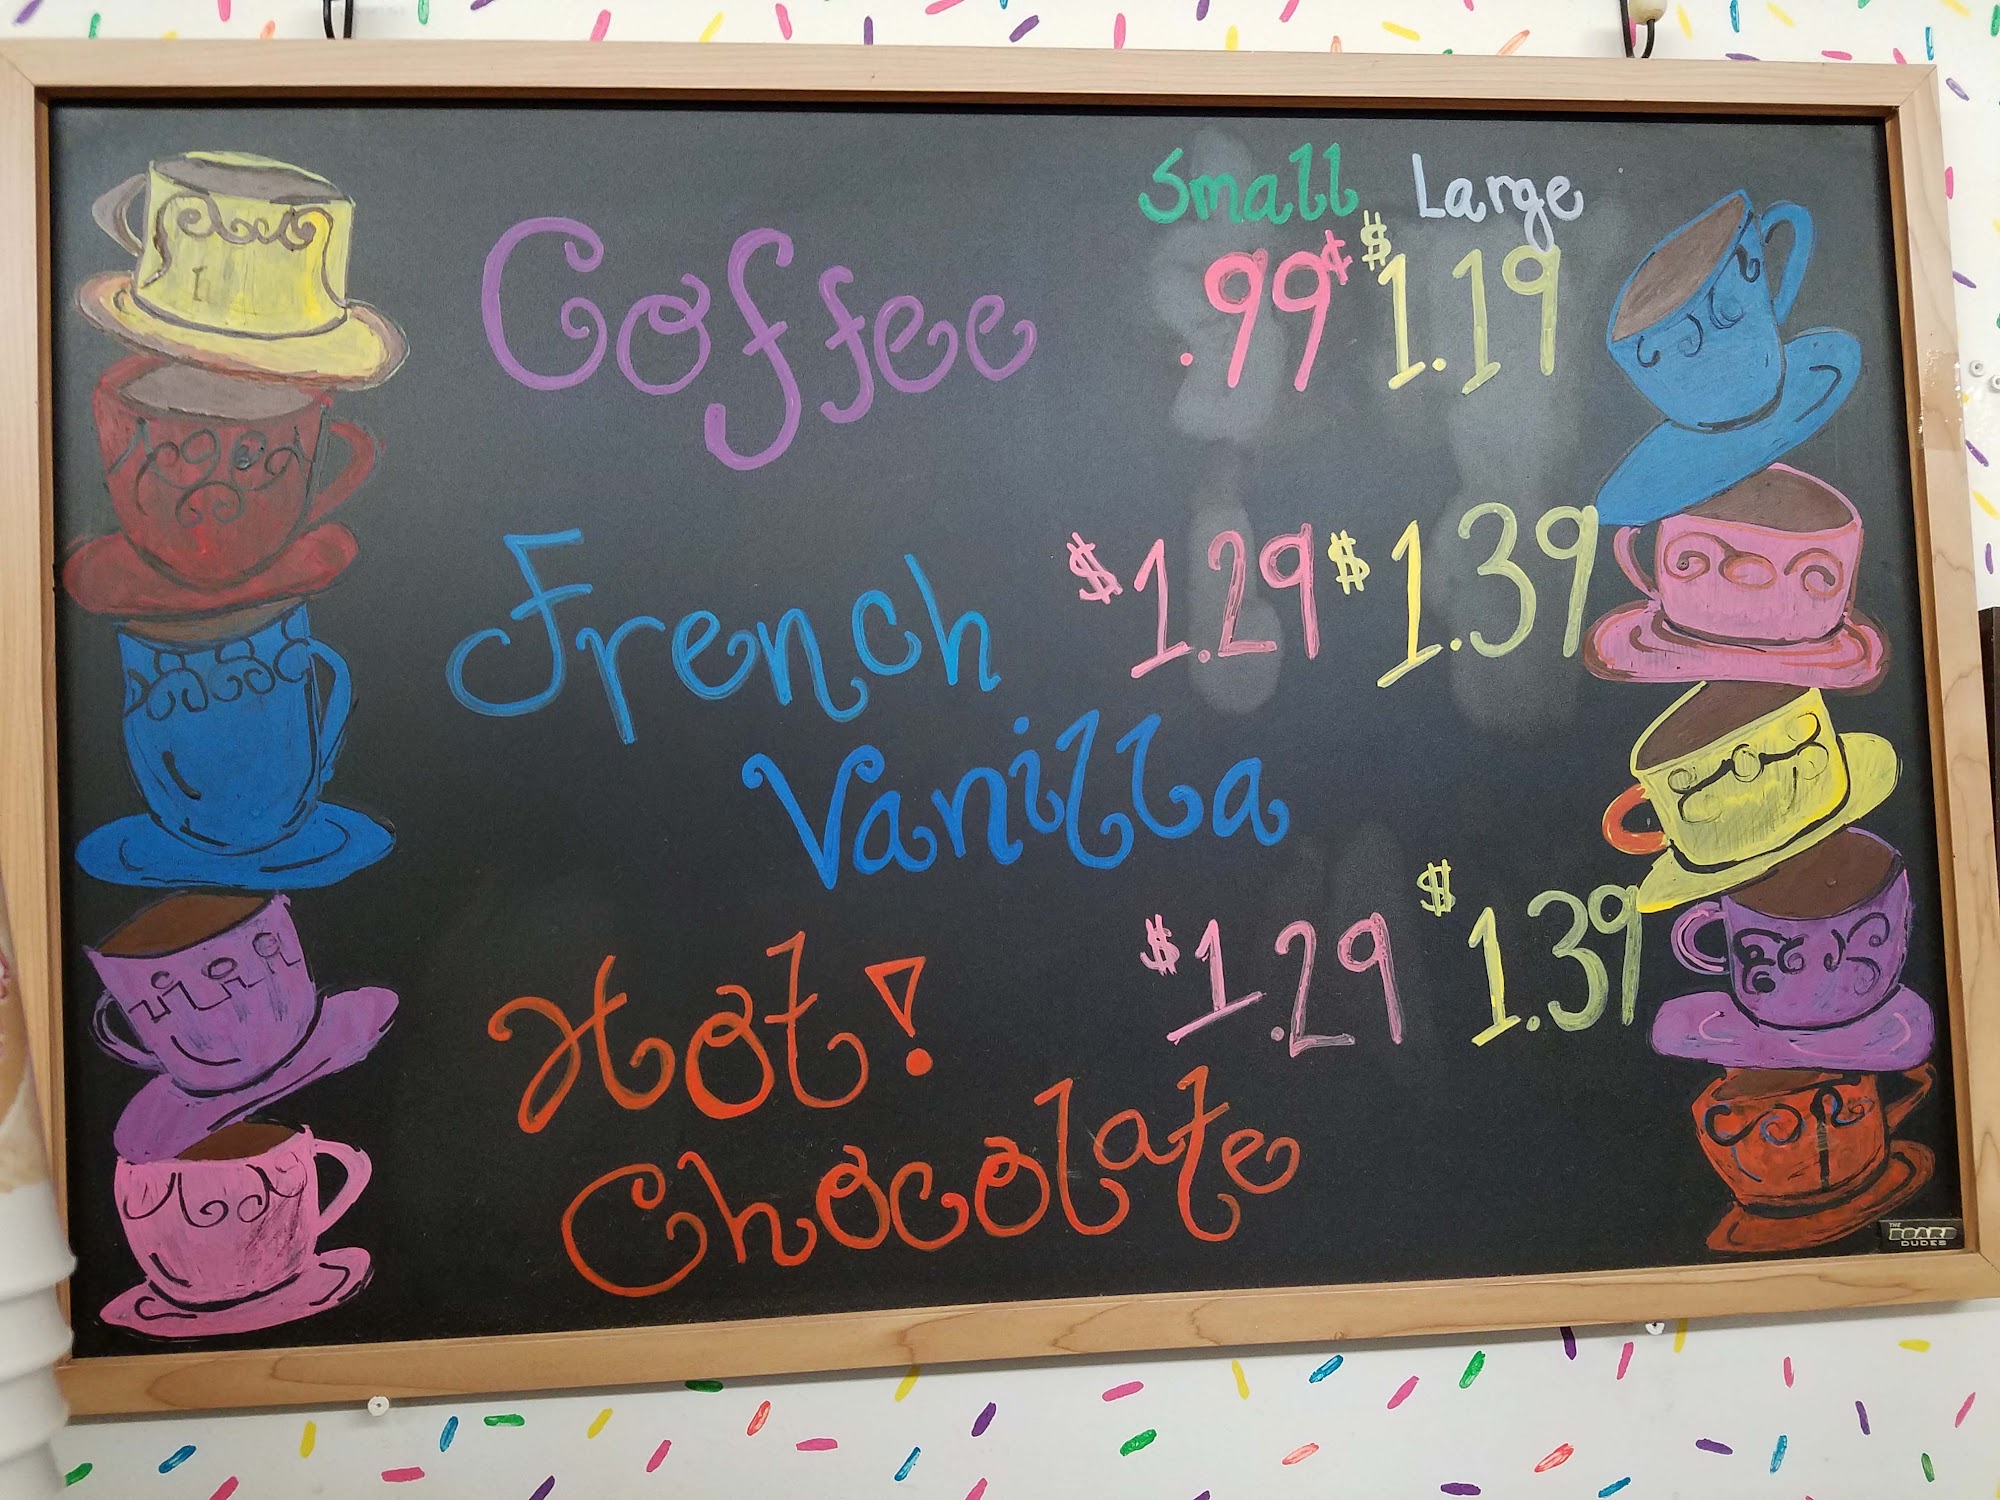 Small Large
Coffee .99¢ $1.19
French $1.29 $1.39
Vanilla
Hot! $1.29 $1.39
Chocolate
THE
BOARD
DUDES